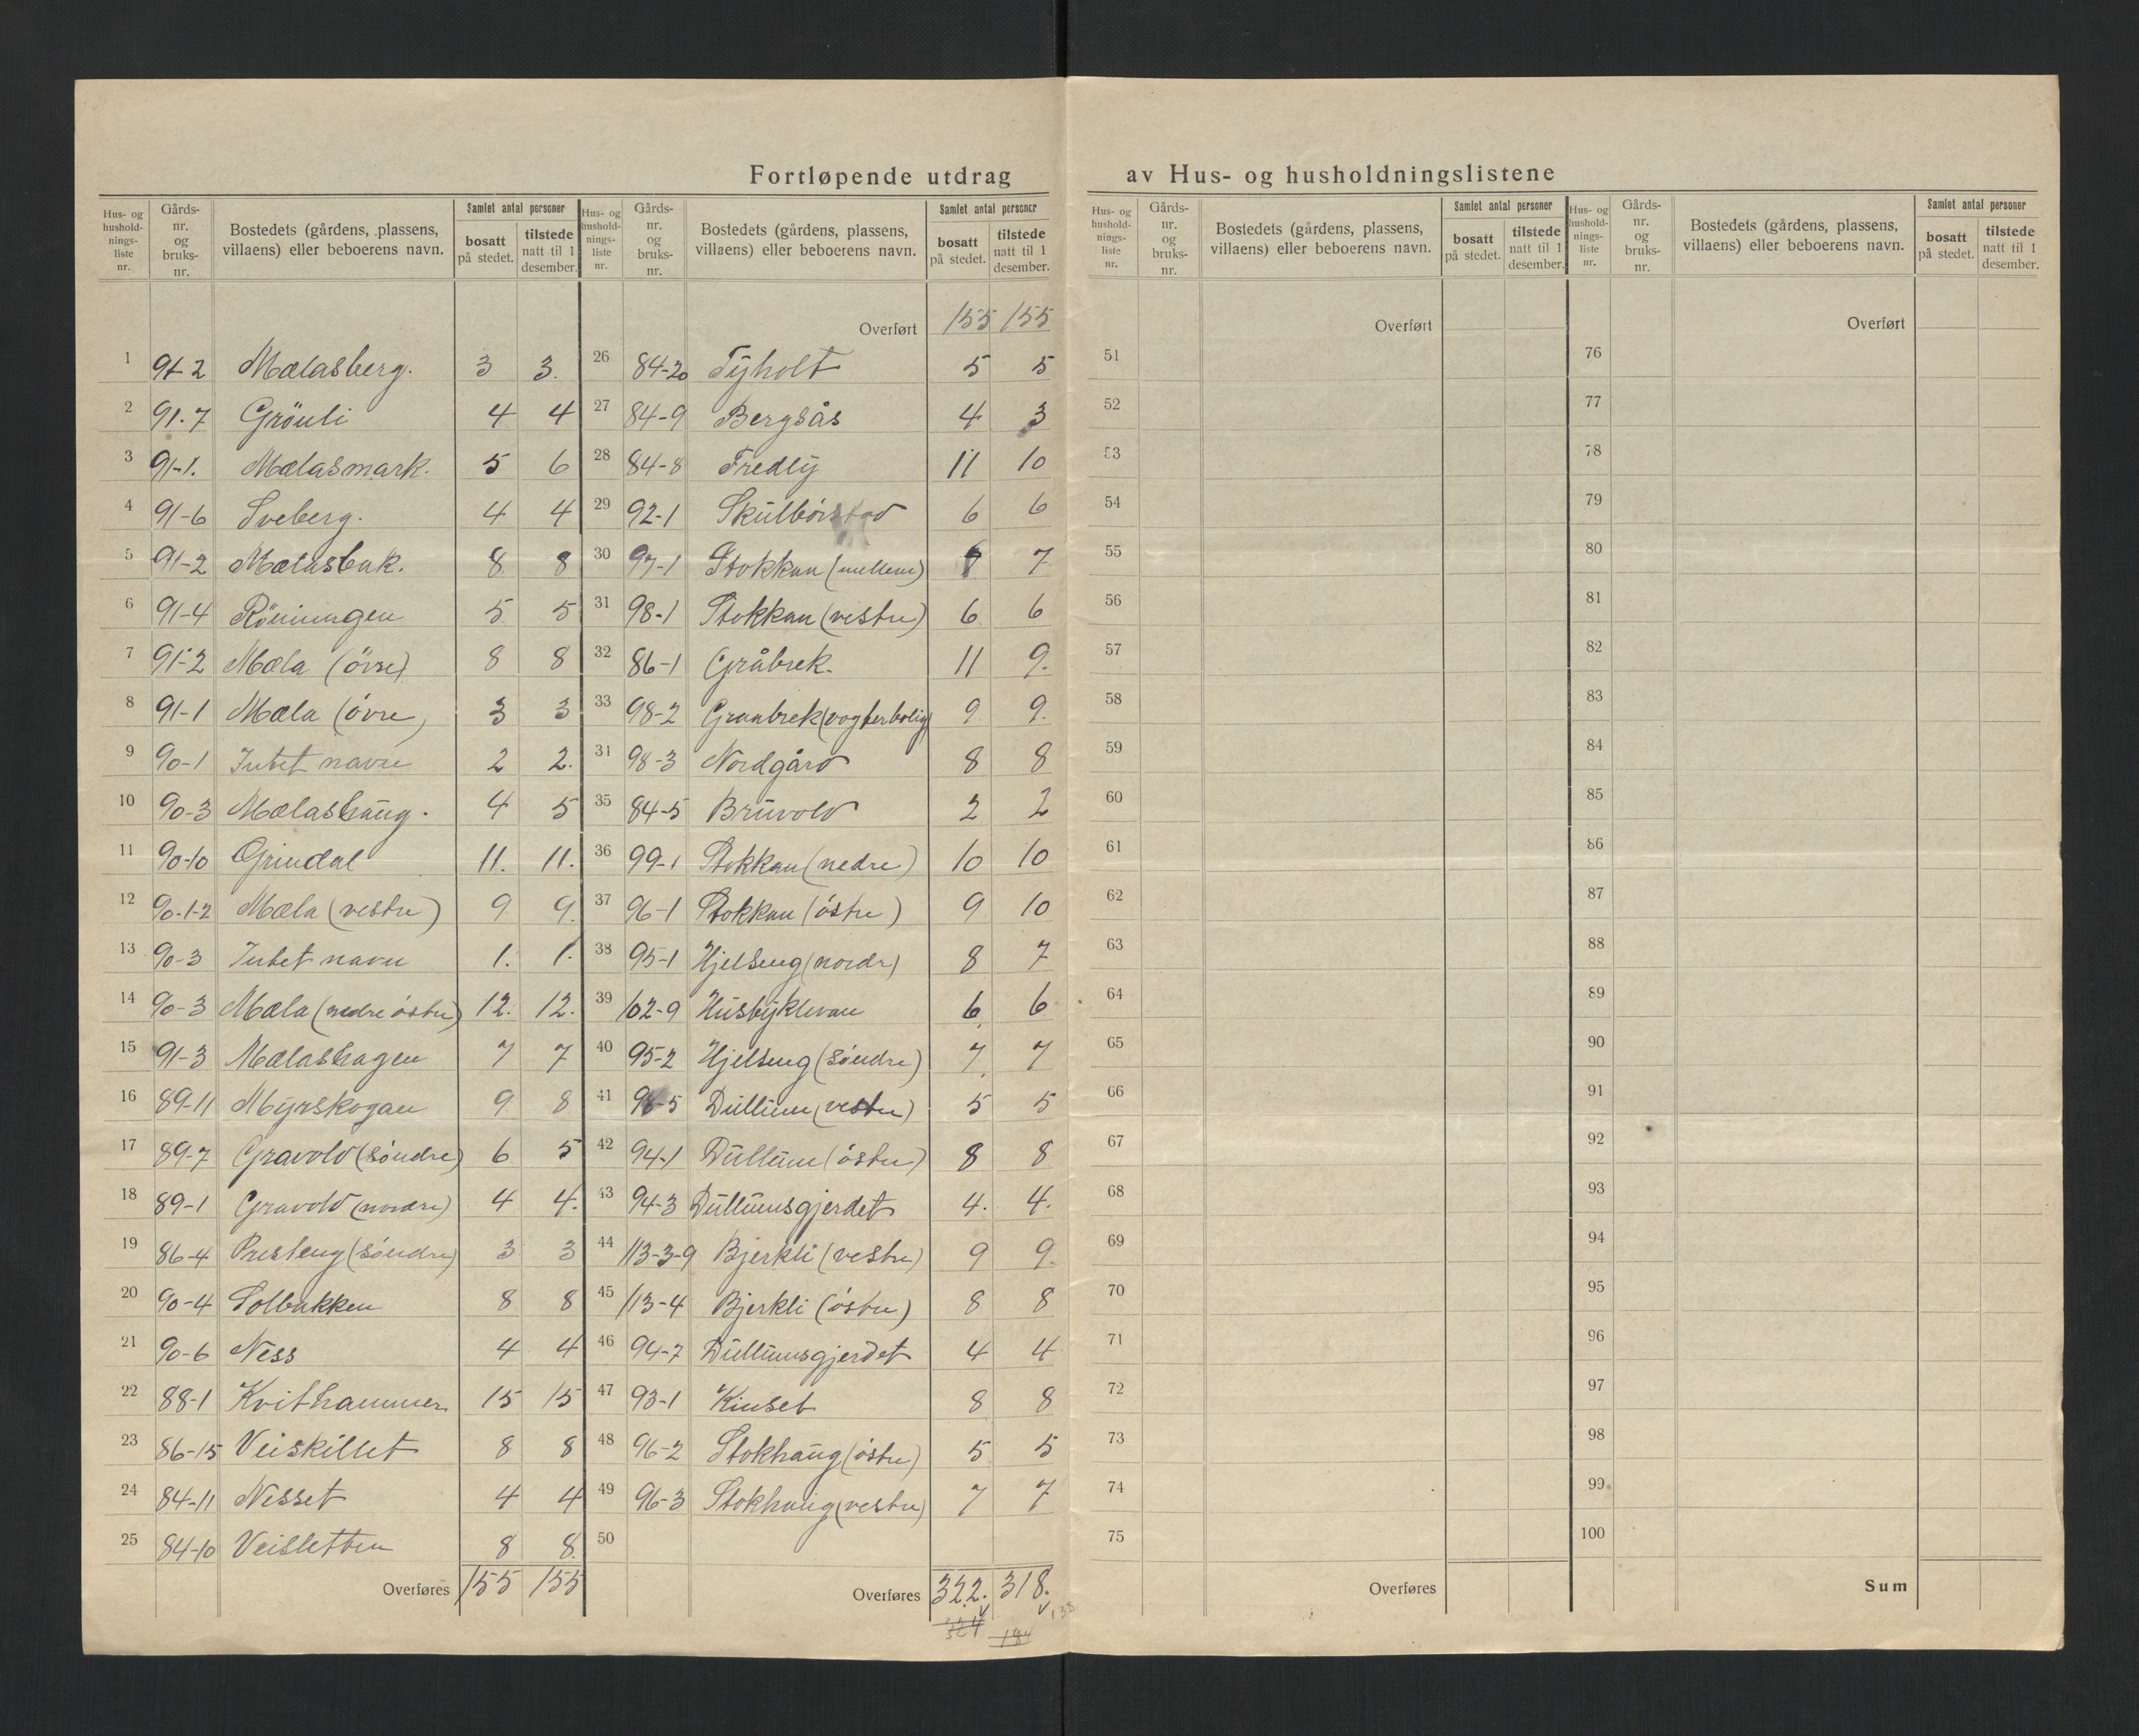 Fortløpende utdrag av Hus- og husholdningslistene
Hus- og hushold-nings-liste nr. Gårds-nr. og bruks-nr. Bostedets (gårdens, plassens, villaens) eller beboerens navn. Samlet antal personer bosatt på stedet. tilstede natt til 1 desember.
Hus- og hushold-nings-liste nr. Gårds-nr. og bruks-nr. Bostedets (gårdens, plassens, villaens) eller beboerens navn. Samlet antal personer bosatt på stedet. tilstede natt til 1 desember.
1 91-2 Mælasberg. 3 3.
2 91.7 Gröuli 4 4
3 91-1. Mælasmark. 5 6
4 91-6 Sveberg. 4 4
5 91-2 Mælasbak. 8 8
6 91-4 Röningen 5 5
7 91-2 Mæla (övre) 8 8
8 91-1 Mæla (övre) 3 3
9 90-1 Intet navn 2 2.
10 90-3 Mælashaug. 4 5
11 90-10 Grindal 11. 11.
12 90-1-2 Mæla (vestre) 9 9.
13 90-3 Intet navn 1. 1.
14 90-3 Mæla (nedre östre) 12. 12.
15 91-3 Mælashagen 7 7
16 89-11 Myrskogan 9 8
17 89-7 Gravold (söndre) 6 5
18 89-1 Gravold (nordre) 4 4.
19 86-4 Presteng (söndre) 3 3
20 90-4 Solbakken 8 8
21 90-6 Ness 4 4
22 88-1 Kvithammer 15 15
23 86-15 Veiskillet 8 8
24 84-11 Nesset 4 4
25 84-10 Veisletten 8 8.
Overføres 155 155
Overført 155 155
26 84-20 Tyholt 5 5
27 84-9 Bergsås 4 3
28 84-8 Fredly 11 10
29 92-1 Skulbörstad 6 6
30 97-1 Stokkan (mellem) 7
31 98-1 Stokkan (vestre) 6 6
32 86-1 Gråbrek. 11 9.
33 98-2 Graabrek (vogterbolig) 9 9.
34 98-3 Nordgård 8 8
35 84-5 Bruvold 2 2
36 99-1 Stokkan (nedre) 10 10
37 96-1 Stokkan (östre) 9 10
38 95-1 Hjelseng (nordr) 8 7
39 102-9 Husbyklevan 6 6
40 95-2 Hjelseng (söndre) 7 7
41 Dullum (vestre) 5 5
42 94-1 Dullum (östre) 8 8
43 94-3 Dullumsgjerdet 4. 4.
44 113-3-9 Bjerkli (vestre) 9 9.
45 113-4 Bjerkli (östre) 8 8
46 94-7 Dullumsgjerdet 4 4
47 93-1 Kinset 8 8
48 96-2 Stokhaug (östre) 5 5
49 96-3 Stokhaug (vestre) 7 7
50
Overføres 322. 318.
324 184
Hus- og hushold-nings-liste nr. Gårds-nr. og bruks-nr. Bostedets (gårdens, plassens, villaens) eller beboerens navn. Samlet antal personer bosatt på stedet. tilstede natt til 1 desember.
Hus- og hushold-nings-liste nr. Gårds-nr. og bruks-nr. Bostedets (gårdens, plassens, villaens) eller beboerens navn. Samlet antal personer bosatt på stedet. tilstede natt til 1 desember.
Overført
51
52
53
54
55
56
57
58
59
60
61
62
63
64
65
66
67
68
69
70
71
72
73
74
75
Overføres
Overført
76
77
78
79
80
81
82
83
84
85
86
87
88
89
90
91
92
93
94
95
96
97
98
99
100
Sum